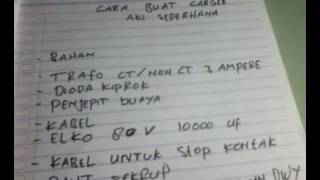 CARA BUAT CARGER
AKI SEDERHANA
- BAHAN
- TRAFO CT/NON CT 3 AMPERE
- DIODA KIPROK
- PENJEPIT BUAYA
- KABEL
- ELKO 80V 10000 uf
- KABEL UNTUK STOP KONTAK
SEKRUP